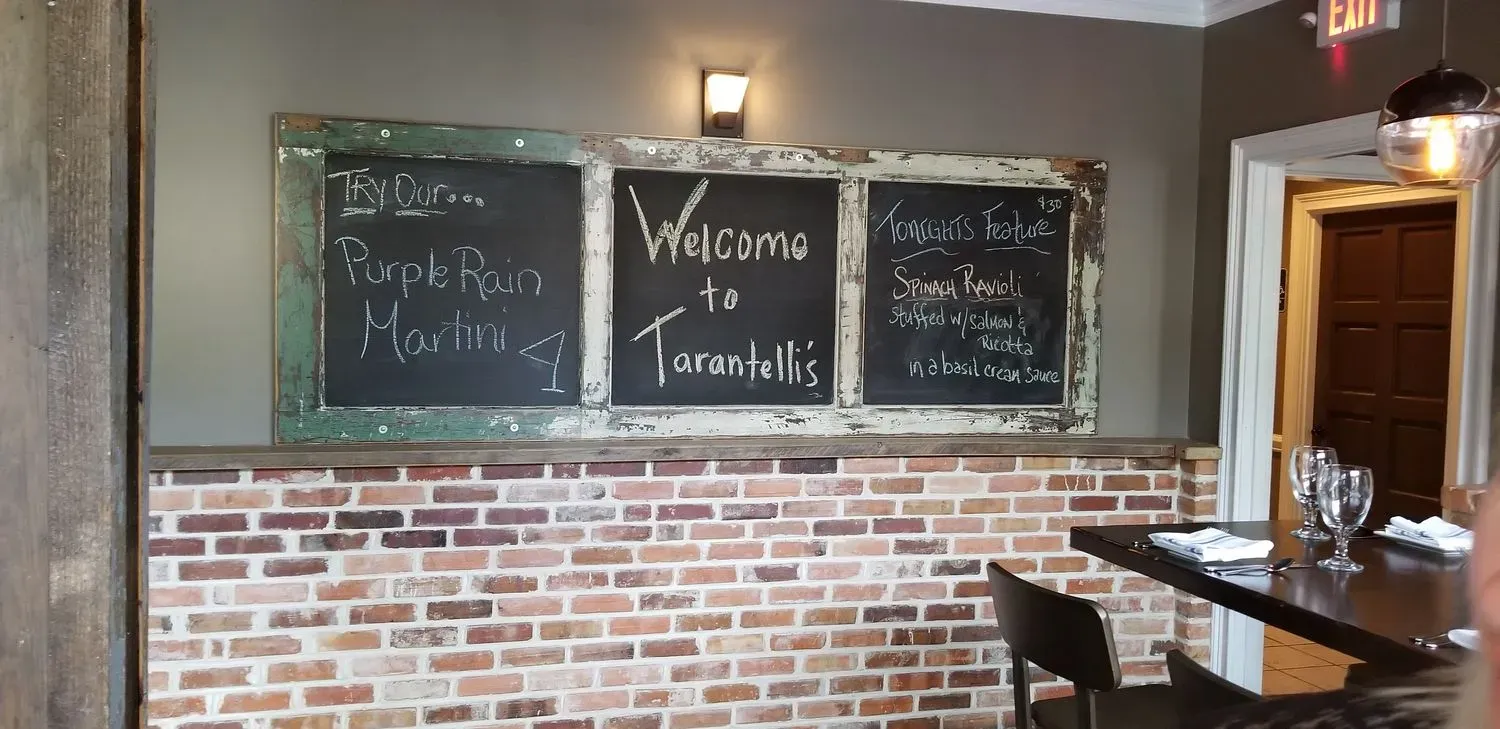 EXIT
Try Our...
Purple Rain
Martini
Welcome
to
Tarantelli's
$30-
Tonights Feature
Spinach Ravioli
stuffed w/ salmon &
Ricotta
in a basil cream sauce